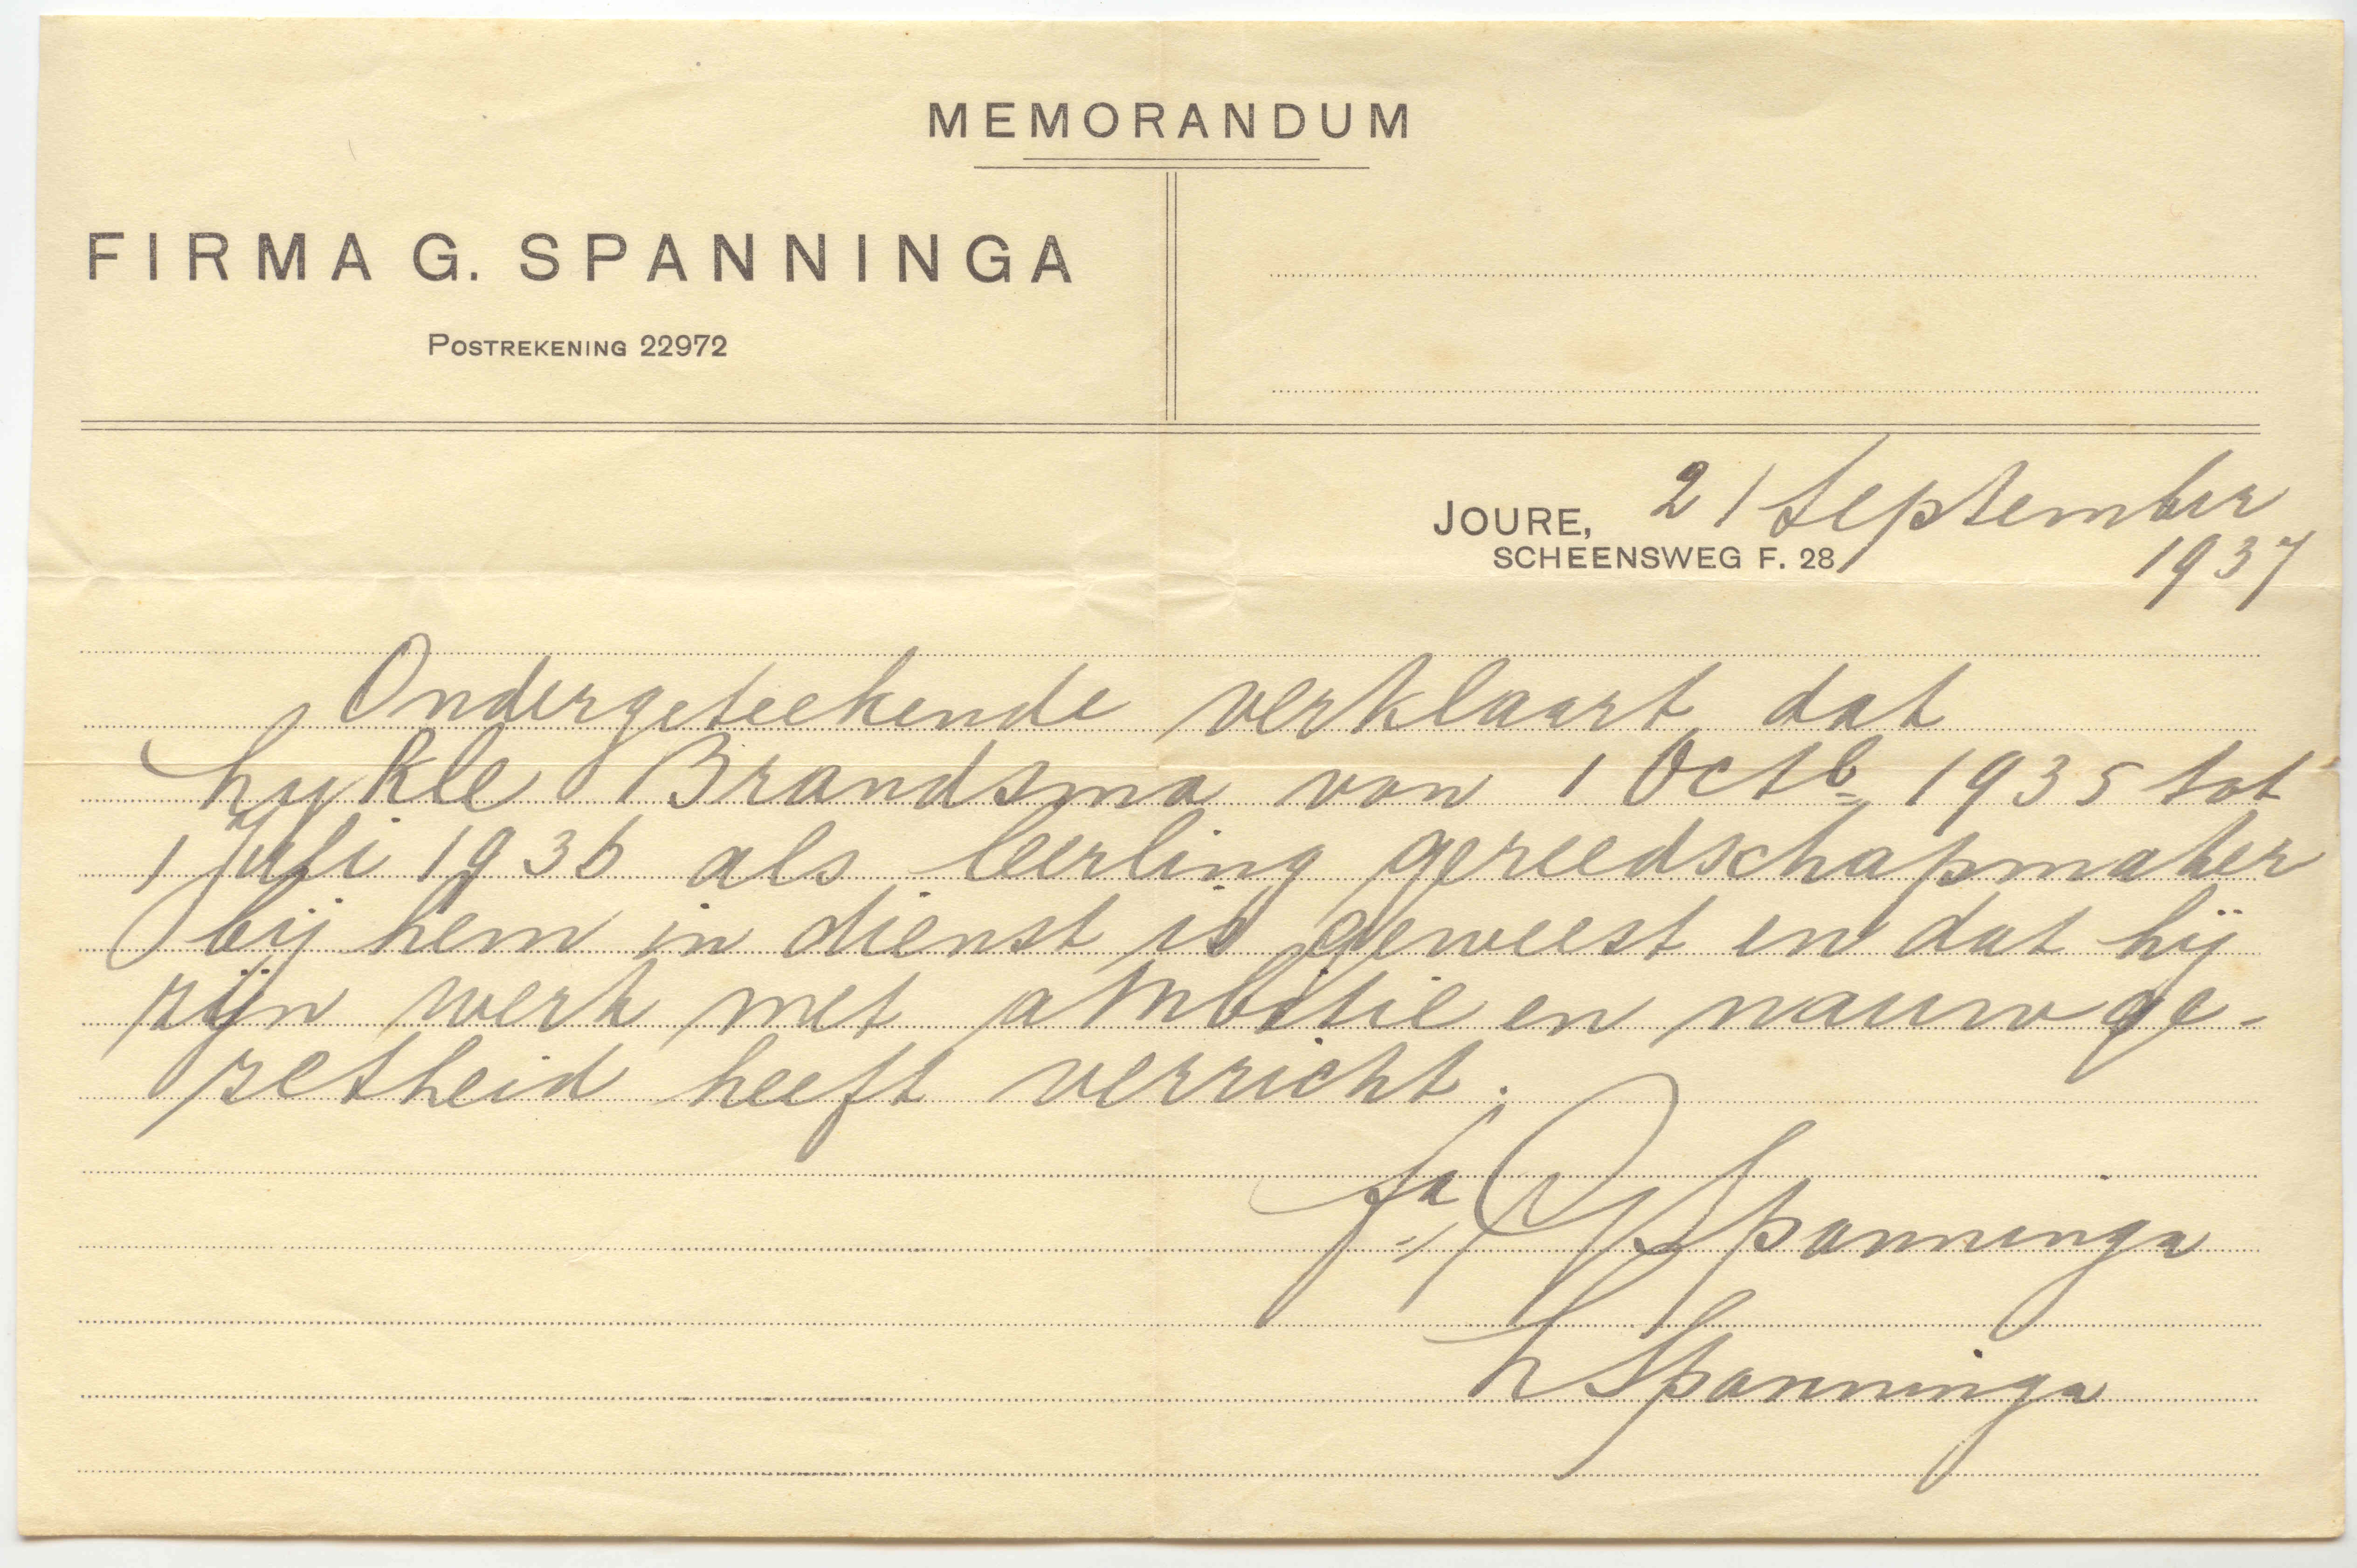 MEMORANDUM
FIRMA G. SPANNINGA
POSTREKENING 22972
JOURE, 21 September
SCHEENSWEG F. 28 1937
Ondergeteekende verklaart dat
Lykle Brandsma van 1 Octb 1935 tot
1 Juli 1936 als leerling gereedschapmaker
bij hem in dienst is geweest en dat hij
zijn werk met ambitie en nauwge-
zetheid heeft verricht.
fa G Spanninga
L Spanninga